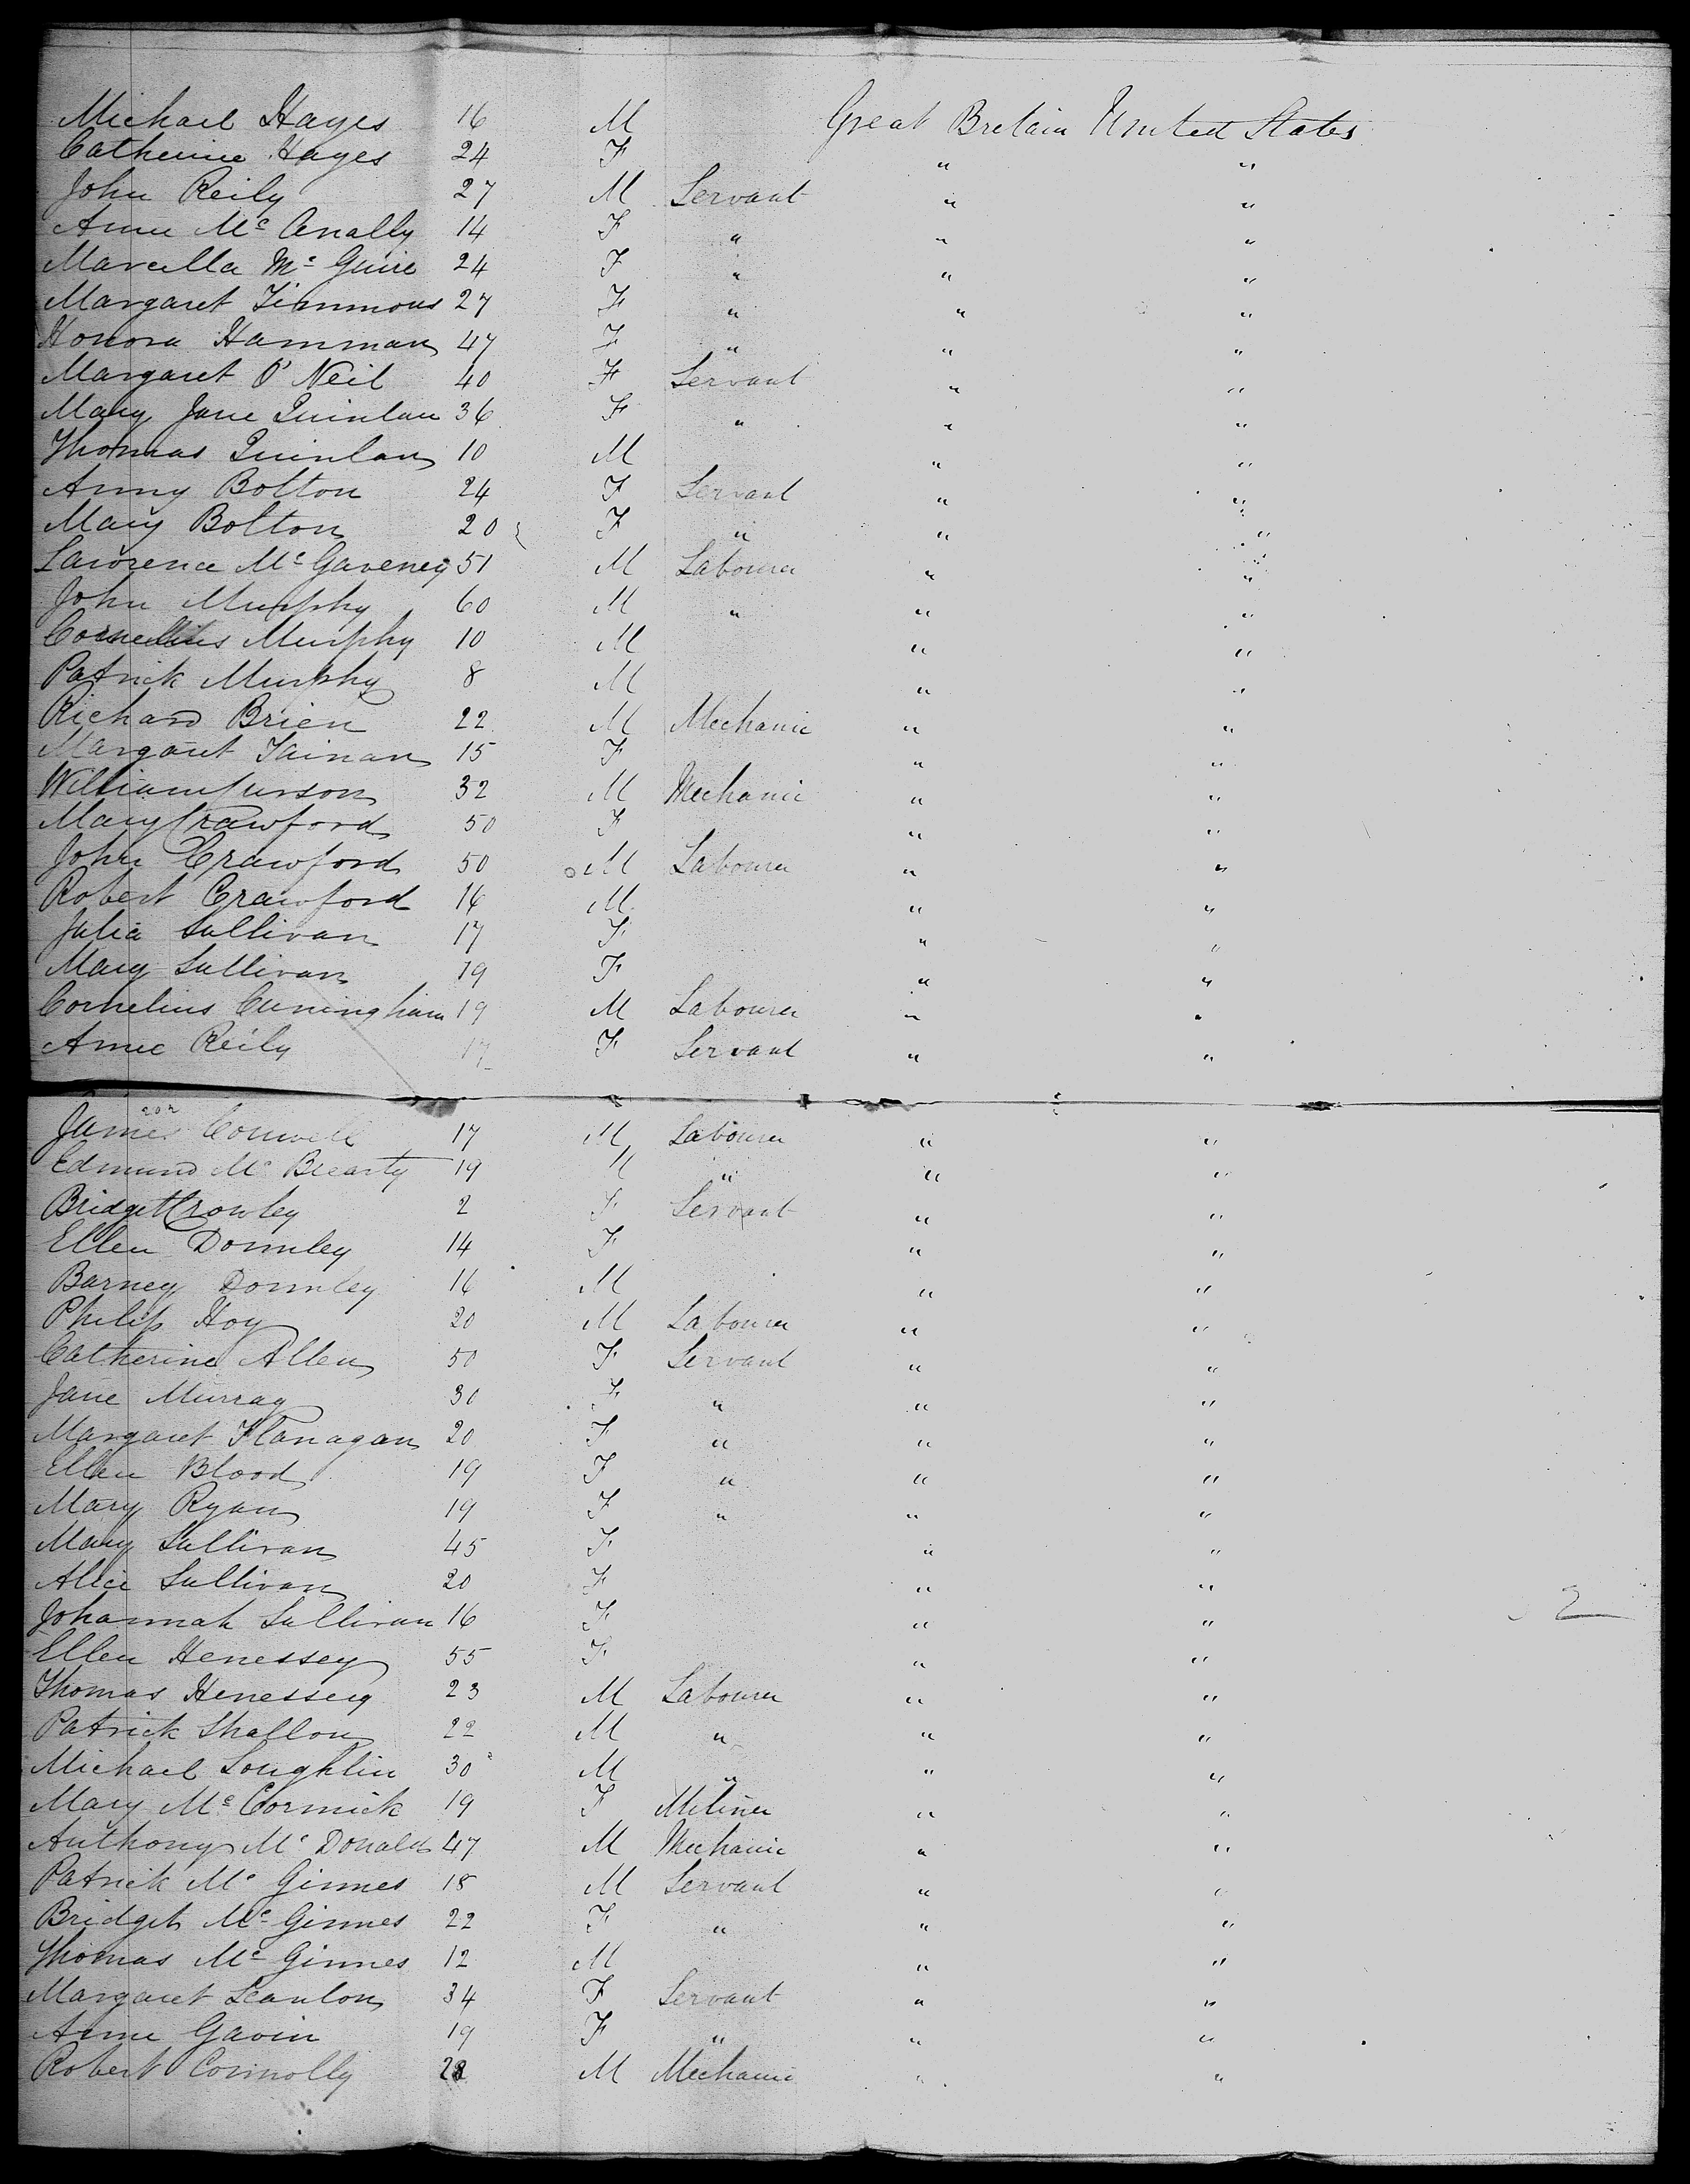 Michael Hayes 16 M Great Britain United States
Catherine Hayes 24 F " "
John Reily 27 M Servant " "
Anne Mc Anally 14 F " " "
Marcella Mc Guire 24 F " " "
Margaret Timmons 27 F " " "
Honora Hamman 47 F " " "
Margaret O'Neil 40 F Servant " "
Mary Jane Quinlan 36 F " " "
Thomas Quinlan 10 M " "
Anny Bolton 24 F Servant " "
Mary Bolton 20 F " " "
Lawrence Mc Gaveney 51 M Labourer " "
John Murphy 60 M " " "
Cornelius Murphy 10 M " "
Patrick Murphy 8 M " "
Richard Brien 22 M Mechanic " "
Margaret Tainan 15 F " "
William 32 M Mechanic " "
Mary Crawford 50 F " "
John Crawford 50 M Labourer " "
Robert Crawford 16 M " "
Julia Sullivan 17 F " "
Mary Sullivan 19 F " "
Cornelius Cuningham 19 M Labourer " "
Anne Reily 17 F Servant " "
202
James Conwell 17 M Labourer " "
Edmund Mc Brearty 19 M " " "
Bridget Crowley 2 F Servant " "
Ellen Donnley 14 F " "
Barney Donnley 16 M " "
Philip Hoy 20 M Labourer " "
Catherine Allen 50 F Servant " "
Jane Murray 30 F " " "
Margaret Flanagan 20 F " " "
Ellen Blood 19 F " " "
Mary Ryan 19 F " " "
Mary Sullivan 45 F " "
Alice Sullivan 20 F " "
Johannah Sullivan 16 F " " 2
Ellen Henessey 55 F " "
Thomas Henessey 23 M Labourer " "
Patrick Shallon 22 M " " "
Michael Loughlin 30 M " " "
Mary Mc Cormick 19 F Miliner " "
Anthony Mc Donald 47 M Mechanic " "
Patrick Mc Ginnes 18 M Servant " "
Bridget Mc Ginnes 22 F " " "
Thomas Mc Ginnes 12 M " "
Margaret Scanlon 34 F Servant " "
Anne Gavin 19 F " " "
Robert Connolly 28 M Mechanic " "